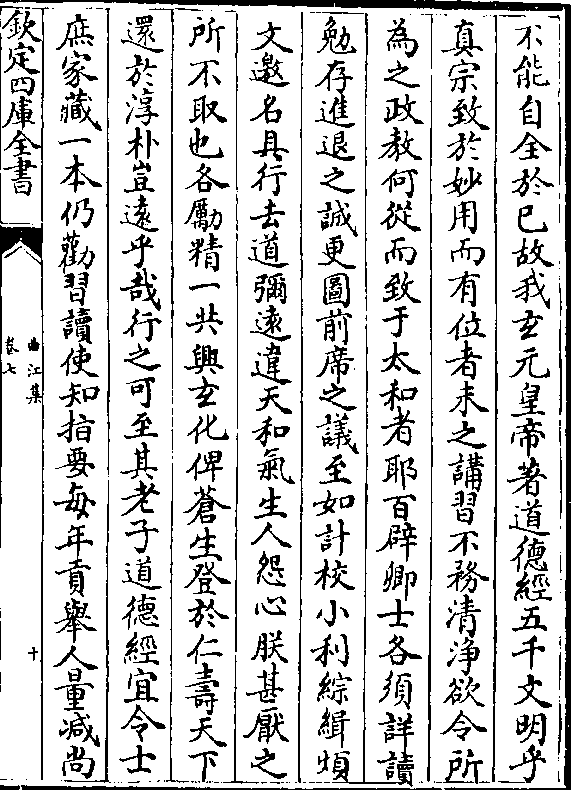 不能自全於已故我𤣥元皇帝著道德經五千文明乎
真宗致於妙用而有位者未之講習不務清浄欲令所
為之政教何從而致于太和者耶百辟卿士各須詳讀
勉存進退之誠更圖前席之議至如計校小利綜緝煩
文邀名具行去道彌逺違天和氣生人怨心朕甚厭之
所不取也各勵精一共興𤣥化俾蒼生登於仁壽天下
還於淳朴豈逺乎哉行之可至其老子道德經宜令士
庶家藏一本仍勸習讀使知指要每年貢舉人量减尚
欽定四庫全書
曲江集
卷七
十